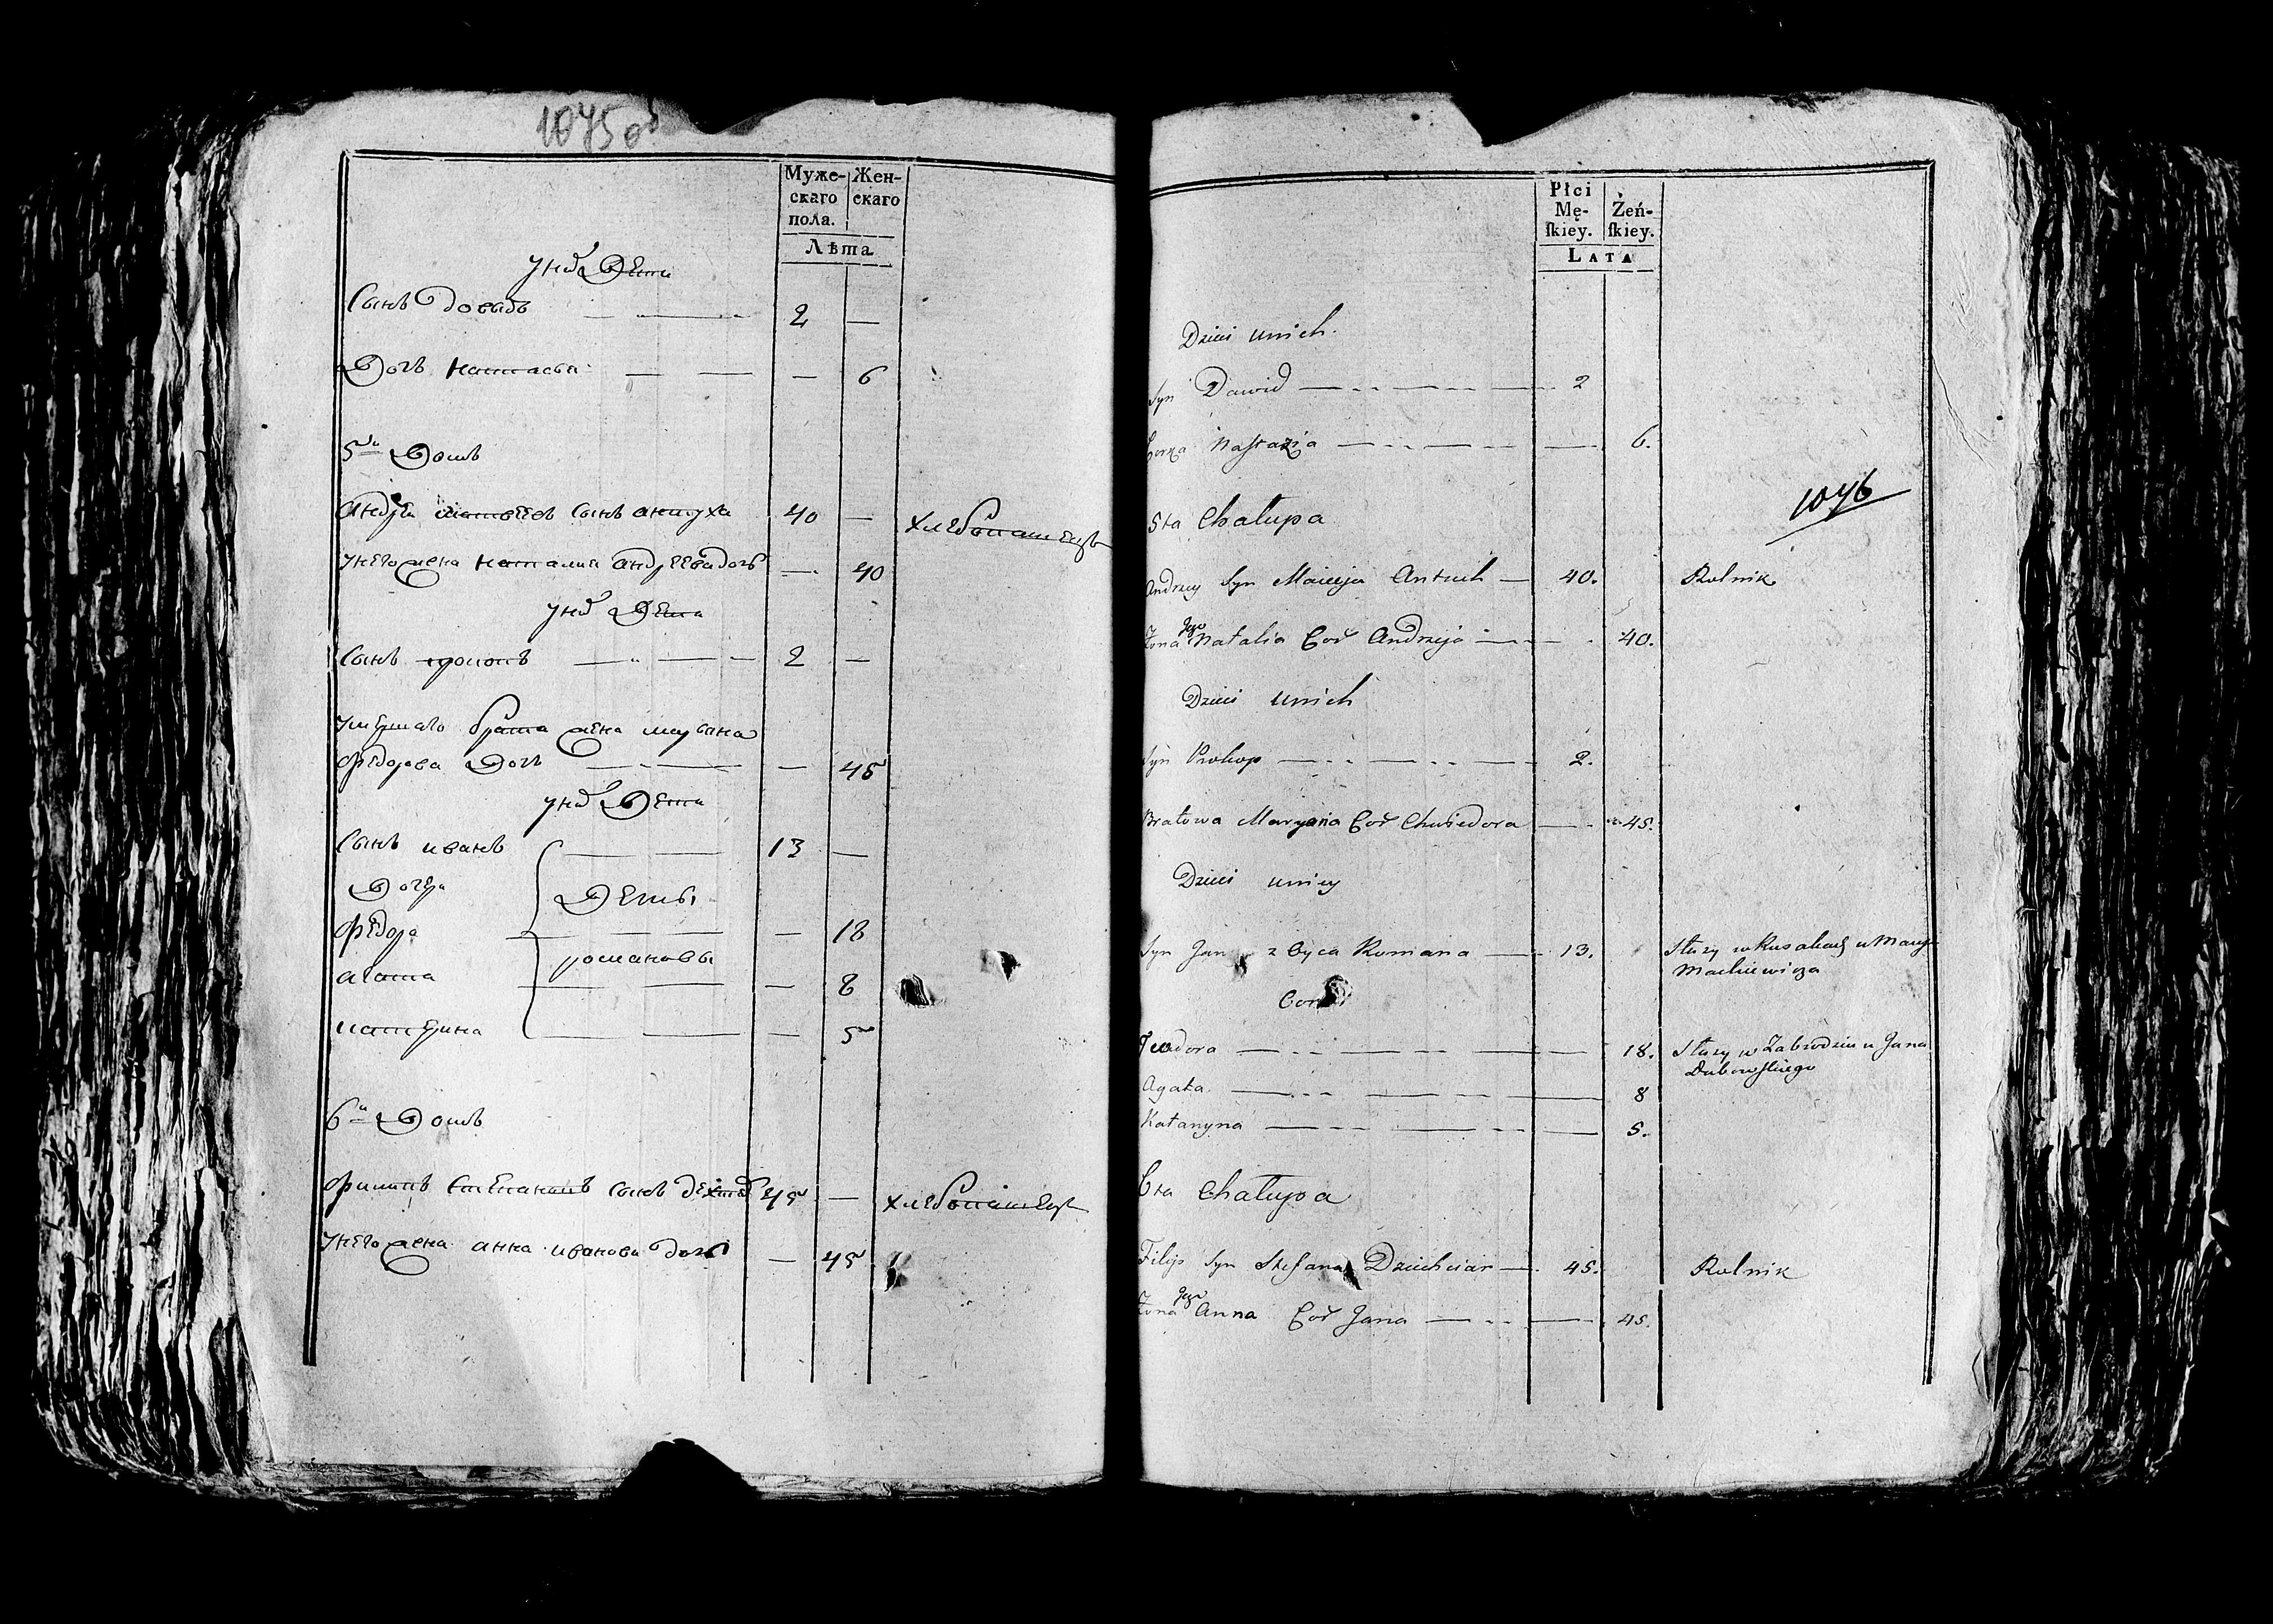 1075 об
Муже-
скаго
пола.
Жен-
скаго
Лѣта
у них Дети
Сынъ Довыдъ — — 2 —
Дочь Настасья — — — 6
5й Домъ
Андрей Матвеевъ сынъ антуха 40 — хлебопашецъ
у него жена Наталия андреева дочь — 40
у них Дети
Сынъ прокопъ — — 2 —
умершаго брата жена марьяна
федорова Дочь — — — 45
у них Дети
Сынъ иванъ — — 13 —
Дочери Дети
федора — — — 18
романовы
агата — — — 8
катерина — — — 5
6й Домъ
филипъ Степановъ сынъ 45 — хлебопашецъ
у него жена анна иванова дочь — 45
Płci
Mę-
skiey.
Żeń-
skiey.
LATA
Dzieci u nich.
Syn Dawid — — — 2
Corka Nastazia — — — 6.
1076
5ta Chałupa
Andrzey Syn Macieja Antuch — 40. Rolnik
Żona Jego Natalia Cor Andrzeja — — 40.
Dzieci u nich
Syn Prokop — — — 2.
Bratowa Maryana Cor Chwiedora — — 45.
Dzieci u niey
Syn Jan z Oyca Romana — 13. Służy w Rusakach u
Mackiewicza
Corki
Teodora — — — 18. Służy w Zabrodziu u Jana
Dubowskiego
Agata — — — 8
Katarzyna — — — 5.
6ta Chałupa
Filip Syn Stefana Dziechciar — 45. Rolnik
Żona Jego Anna Cor Jana — — 45.